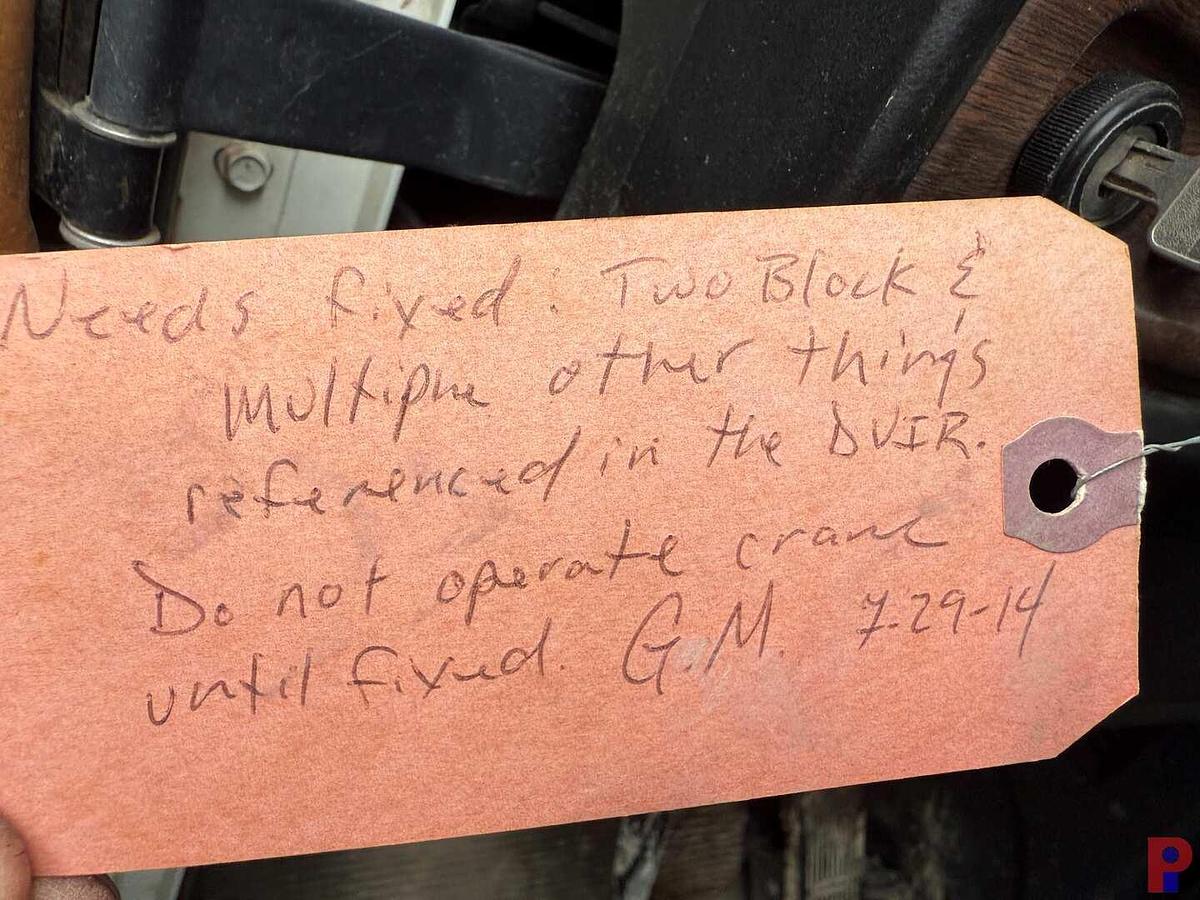 Needs fixed: Two Block &
multiple other things
referenced in the DVIR.
Do not operate crane
until fixed. G.M. 7-29-14